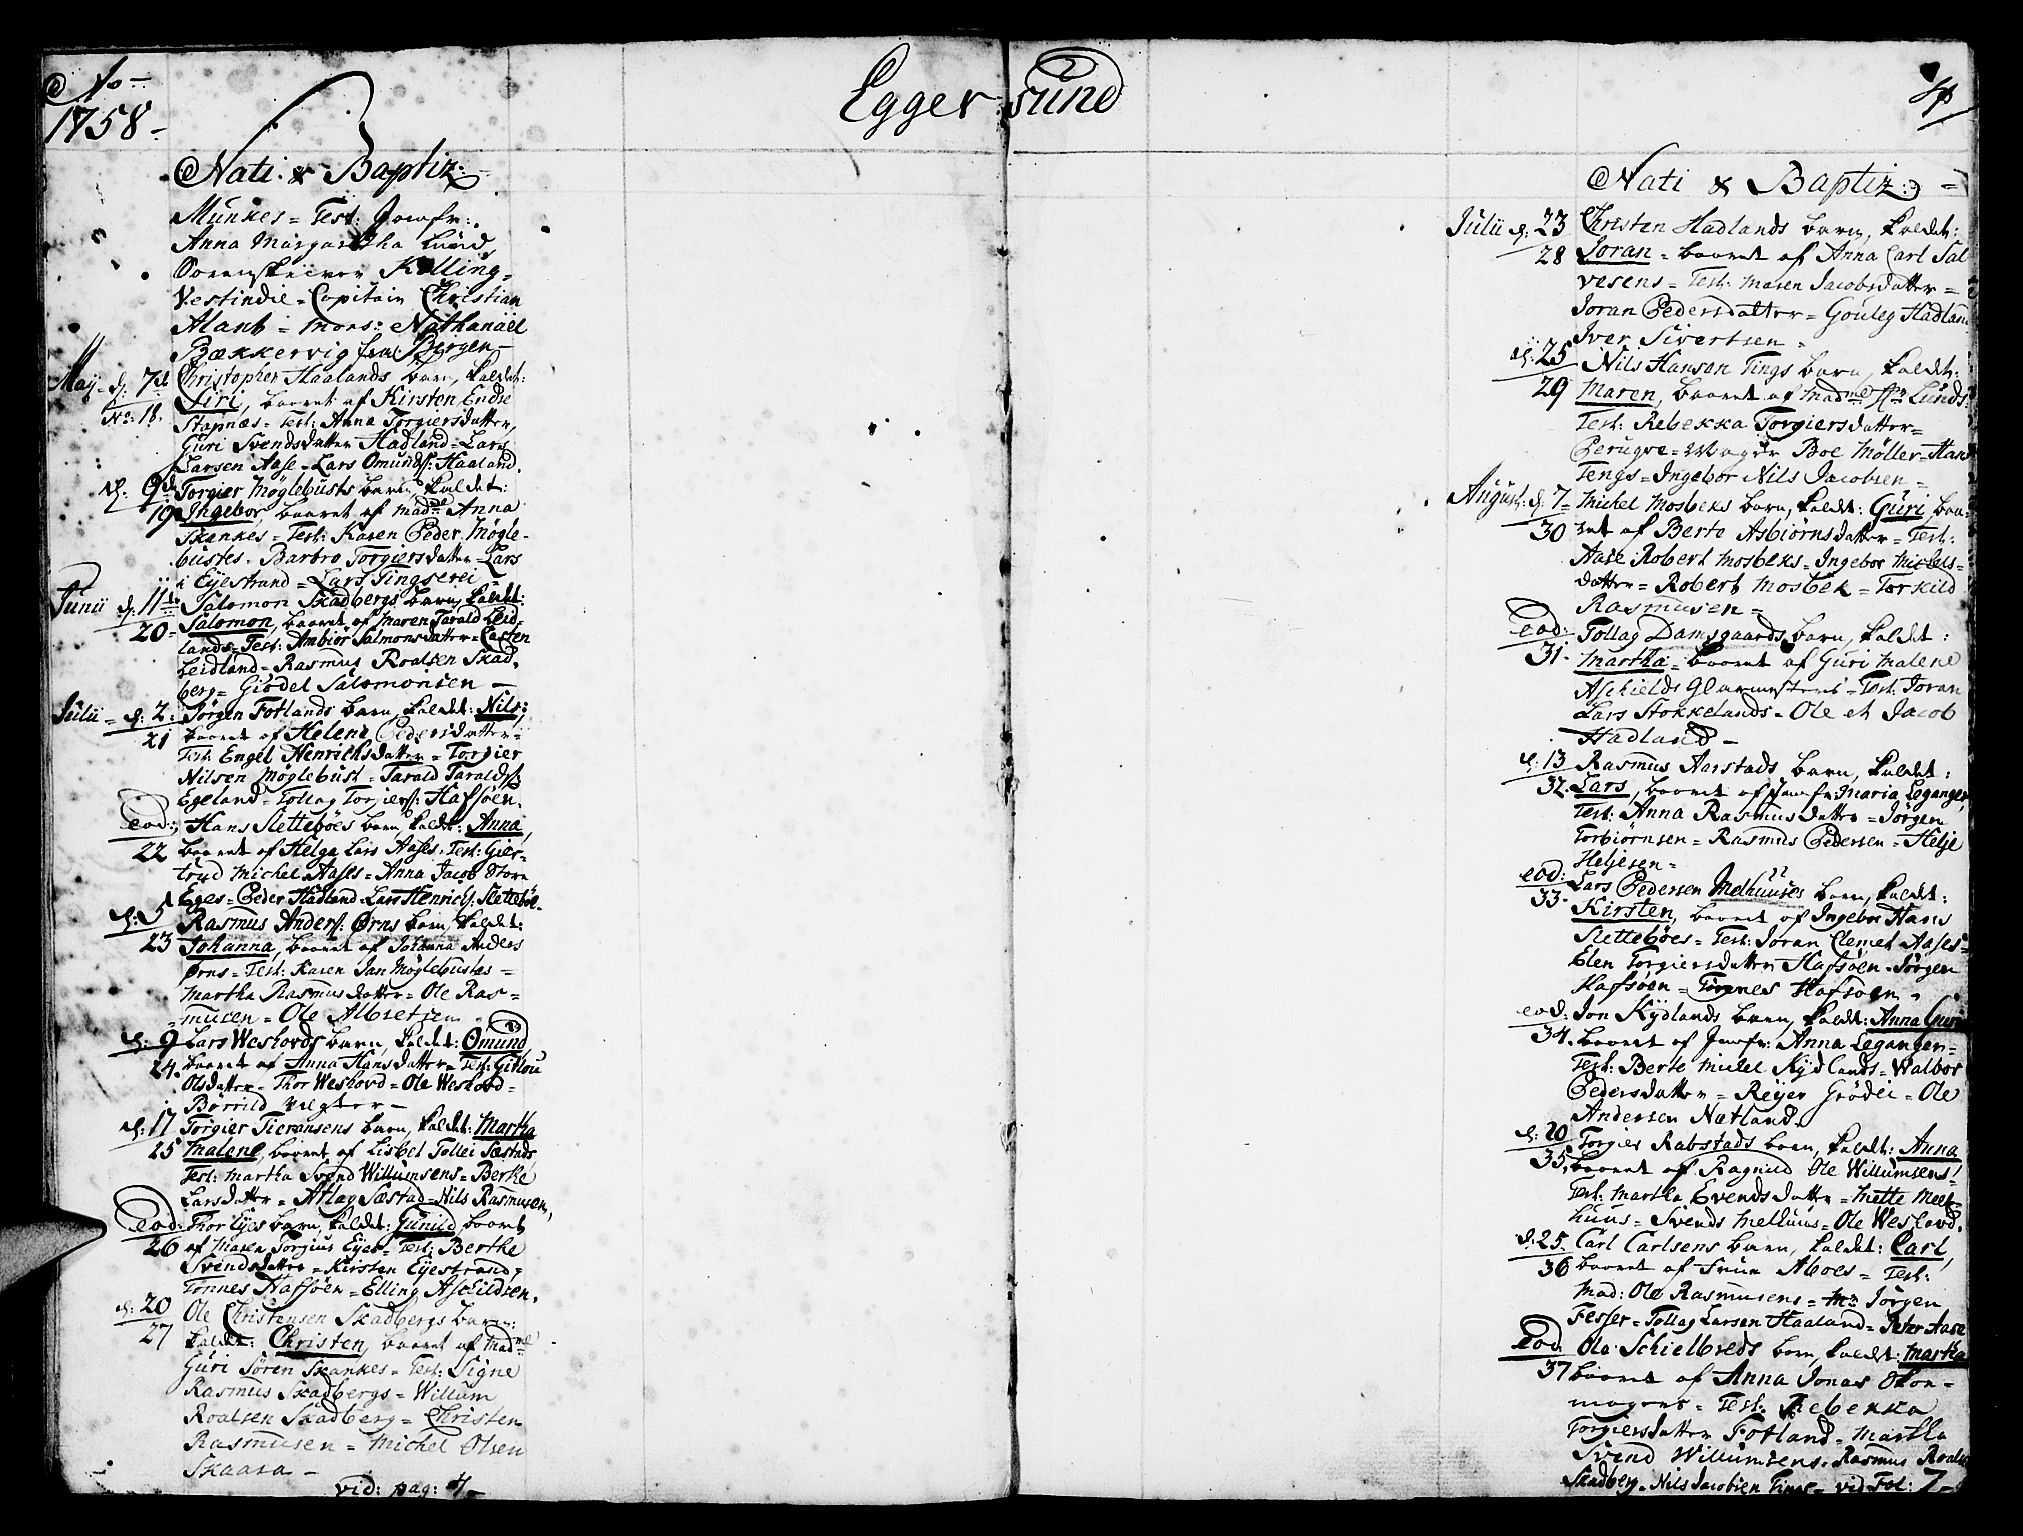 Ao
1758-
Egger sund
4
Nati & Baptiz:
Munkes = Test: Jomfr:
Anna Margaretha Lund
Sorenskriver Kelling =
Vestindie = Capitain Christian
Alant = Mons: Nathanaël
Bækkervig fra Bergen -
Maj d: 7de Christopher Haalands barn, kaldet:
No: 18. Siri, baaret af Kirsten Endre
Stapnæs = Test: Anna Torgiersdatter,
Guri Svendsdatter Hadland = Lars
Larsen Aase = Lars Omunds: Haaland.
d: 9de Torgier Møglebusts barn, kaldet:
19 Ingebor, baaret af Madme Anna
Skankes = Test: Karen Peder Møgle-
bustes = Barbro Torgiersdatter = Lars
i Eyestrand = Lars Tingserei -
Junii d. 11te Salomon Skadbergs barn, kaldet:
20 - Salomon, baaret af Maren Tarald Leid-
lands = Test: Ambiør Salmonsdatter = Carsten
Leidland = Rasmus Roalsen Skad-
berg = Giødel Salomonsen -
Julii = d: 2: Jørgen Fotlands barn, kaldet: Nils,
21 baaret af Helene Pedersdatter =
Test: Engel Henrichsdatter = Torgier
Nilsen Møglebust = Tarald Taralds:
Egeland = Tollag Torgiers: Hafsøen.
eod: Hans Slettebøes barn, kaldt: Anna,
22 baaret af Helga Lars Aases = Test: Gier-
trud Michel Aases = Anna Jacob Store
Eges = Peder Hadland = Lars Henrichs: Slettebøe -
d: 5 Rasmus Anders: Ørns barn, kaldet:
23 Johanna, baaret af Johanna Anders
Ørns = Test: Karen Jan Møglebustes =
Martha Rasmusdatter = Ole Ras-
musen = Ole Albretsen -
d: 9 Lars Weshovds barn, kaldet: Omund
24. baaret af Anna Hansdatter = Test: Gitlou
Olsdatter = Thor Weshovd = Ole Weshovd =
Børrild Vægter -
d: 17 Torgier Tieransens barn, kaldet: Martha
25 Malene, baaret af Lisbet Tollei Sæstads
Test: Martha Svend Willumsens = Berthe
Larsdatter = Atlag Sæstad = Nils Rasmusen,
eod: Thor Eyes barn, kaldet: Gunild, baaret
26 af Maren Torgius Eyes = Test: Berthe
Svendsdatter = Kirsten Eyestrand,
Tønnes Hafsøen = Elling Aschildsen.
d: 20 Ole Christensen Skadbergs barn:
27 kaldet: Christen, baaret af Madme
Guri Søren Skankes = Test: Signe
Rasmus Skadbergs = Willum
Roalsen Skadberg = Christen
Rasmusen = Michel Olsen
Skaara -
vid: pag: 4 -
Nati & Baptiz: =
Julii d: 23 Christen Hadlands barn, kaldet:
28 Joran = baaret af Anna Carl Sal
vesens = Test: Maren Jacobsdatter =
Joran Pedersdatter = Gouleg Hadland
Iver Sivertsen =
d: 25 Nils Hansen Tings barn, kaldet:
29 Maren, baaret af Madme Hr Lunds
Test: Rebekka Torgiersdatter =
Boe Møller = Hans
Tengs = Ingebor Nils Jacobsen =
August: d: 7 - Michel Mosbeks barn, kaldt: Guri, baa-
30 ret af Berte Asbiørnsdatter = Test:
Aase Robert Mosbeks = Ingebor Michels-
datter = Robert Mosbek = Torkild
Rasmusen =
eod: Tollag Damsgaards barn, kaldet:
31. Martha = baaret af Guri Malene
Aschields Glarmesters = Test: Joran
Lars Stokkelands = Ole et Jacob
Hadland -
d: 13 Rasmus Aarstads barn, kaldet:
32. Lars, baaret af Jomfr: Maria Leganger
Test: Anna Rasmusdatter = Jørgen
Torbiørnsen = Rasmus Pedersen = Helje
Heljesen =
eod: Lars Pedersen Melhuuses barn, kaldet:
33. Kirsten, baaret af Ingebor Hans
Slettebøes = Test: Joran Clemet Aases =
Elen Torgiersdatter Hafsøen = Jørgen
Hafsøen = Tønnes Hafsøen -
eod: Jon Kydlands barn, kaldt: Anna Guri
34. baaret af Jomfr: Anna Leganger =
Test: Berte Michel Kydlands = Walbor
Pedersdatter = Reyer Grødei = Ole
Andersen Nætland.
d: 20 Torgier Rabstads barn, kaldt: Anna
35. baaret af Ragnild Ole Willumsens
Test: Martha Evendsdatter = Mette Mel-
huus = Svends Melhuus = Ole Weshovd.
d: 25. Carl Carlsens barn, kaldet: Carl,
36 baaret af Frue Aboes = Test:
Mad: Ole Rasmusens = Mr Jørgen
Fesser = Tollag Larsen Haaland = Peter Aase
eod. Ole Schielbreds barn, kaldt: Martha
37 baaret af Anna Jonas Skoe-
magers = Test: Rebekka
Torgiersdatter Fotland = Martha
Svend Willumsens = Rasmus Roalsen
Skadberg = Nils Jacobsen Tings = vid Fol: 7 -